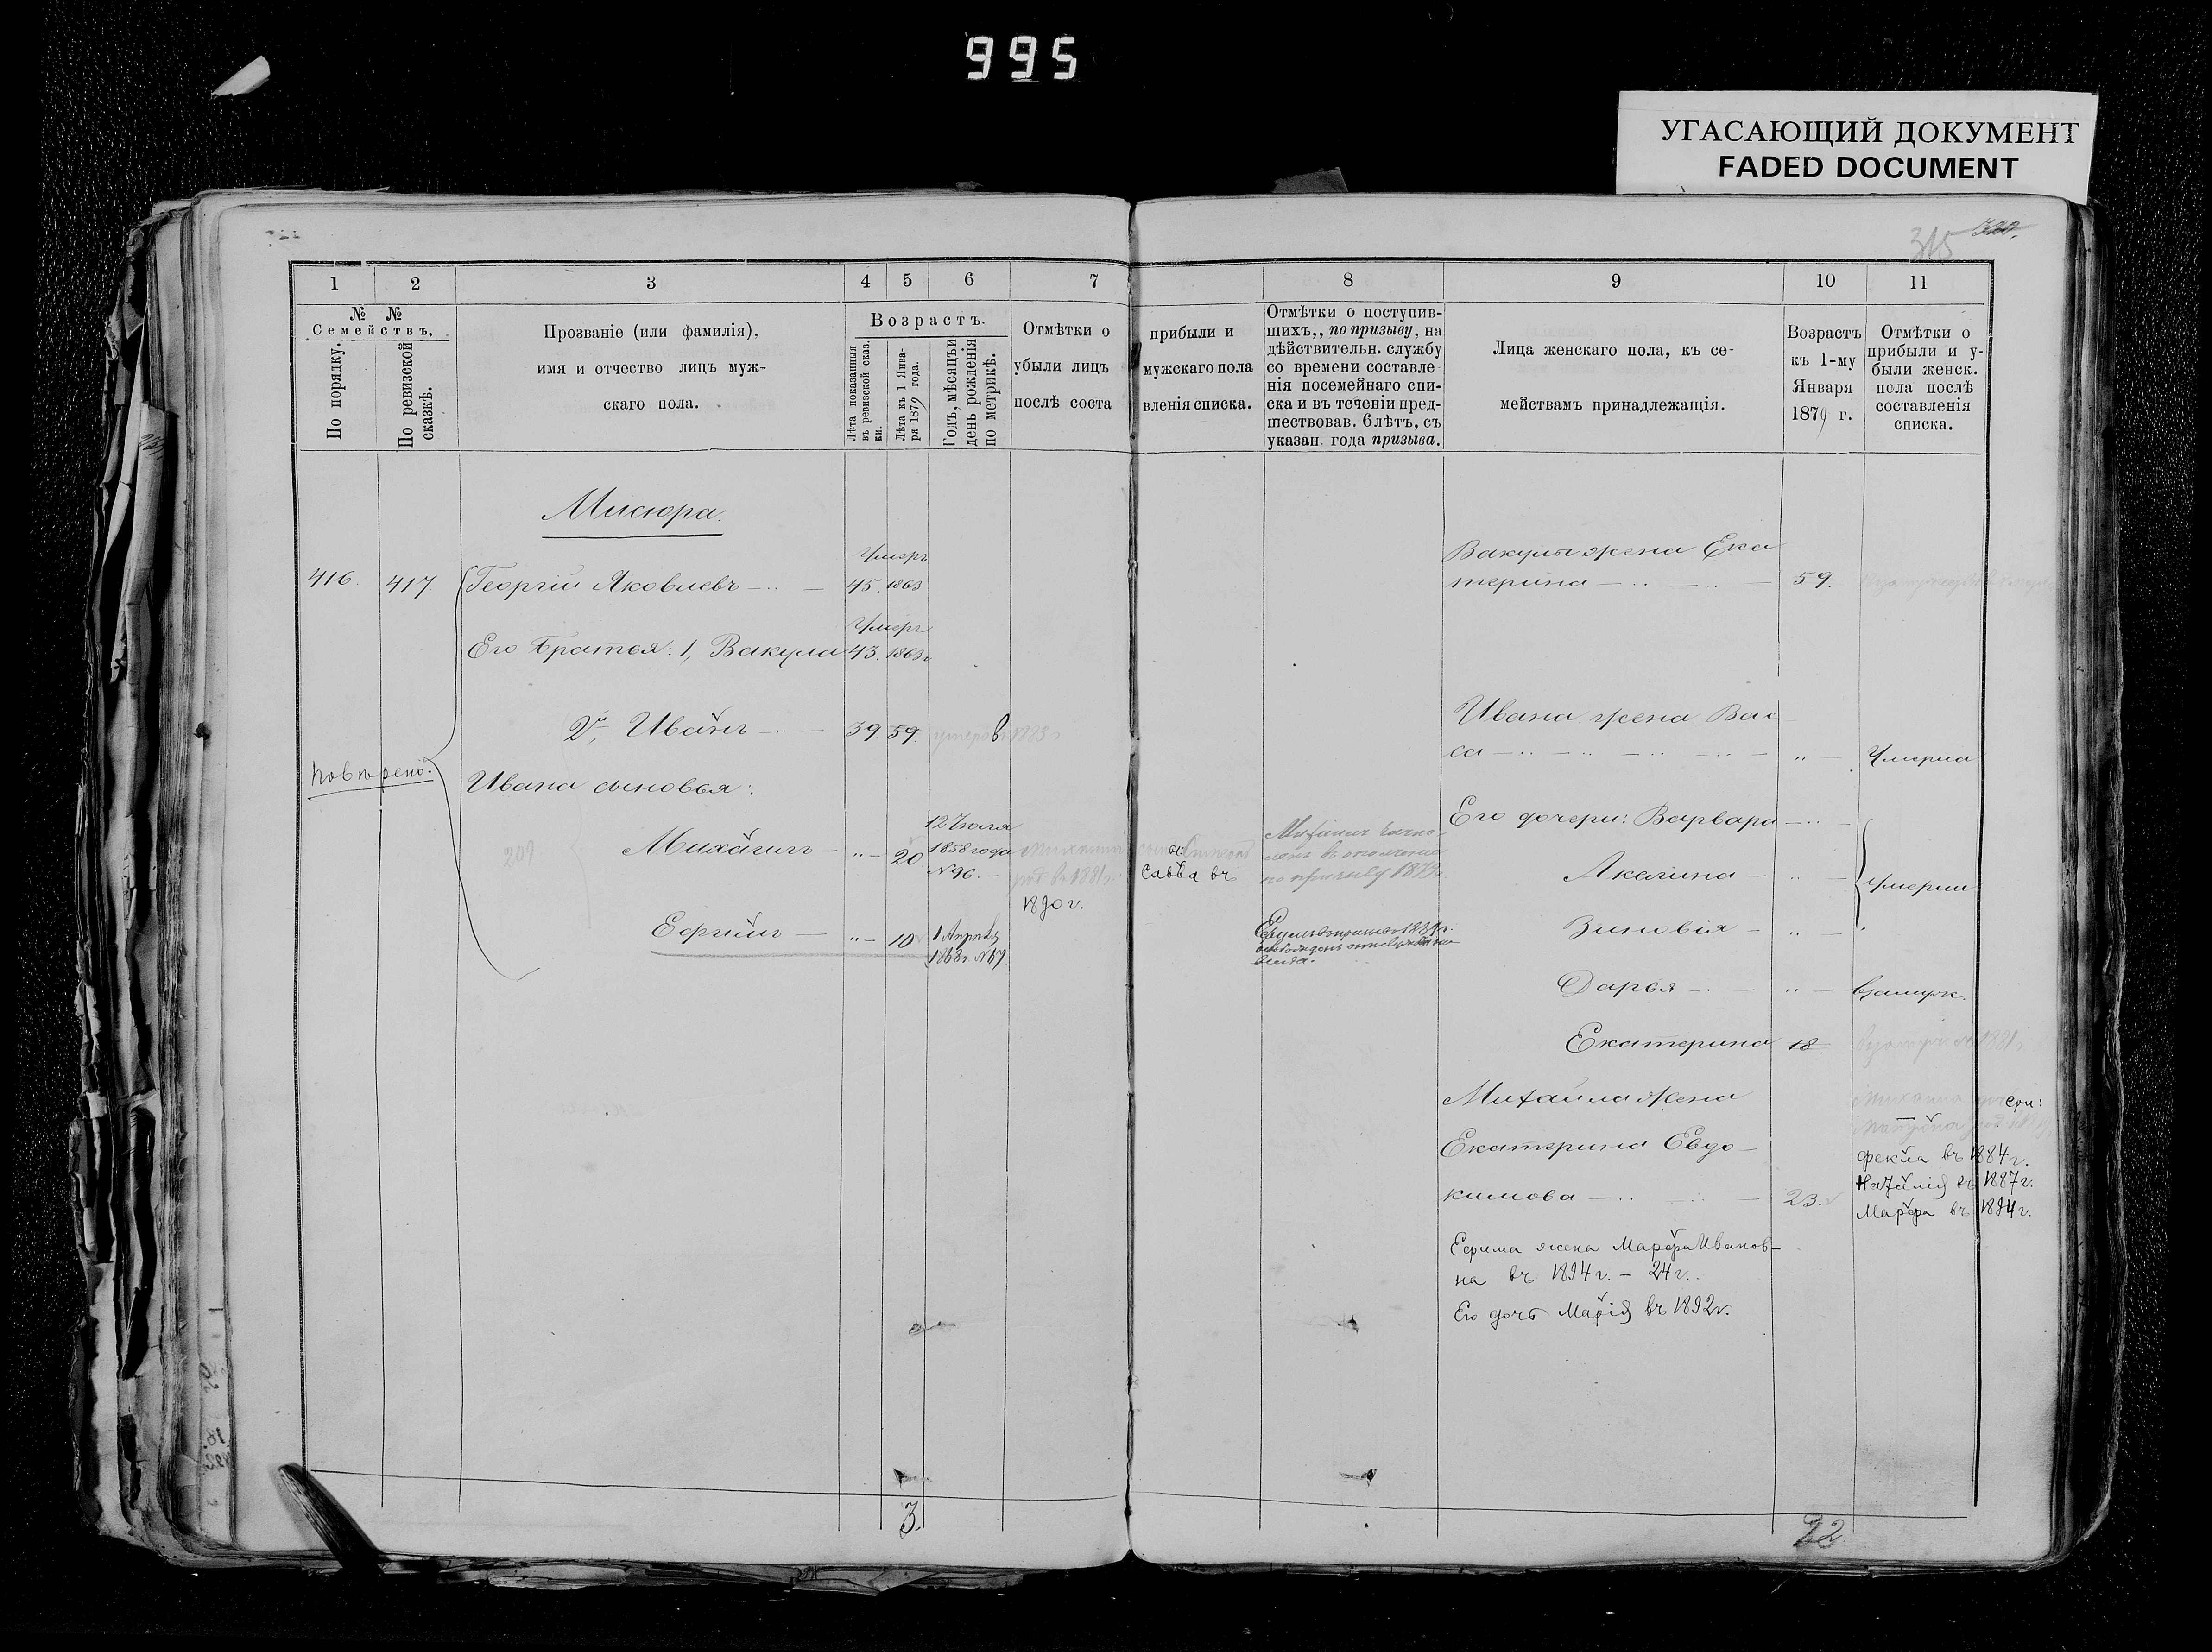 995
УГАСАЮЩИЙ ДОКУМЕНТ
FADED DOCUMENT
315
1 2 3 4 5 6 7
№ №
Семействъ,
По порядку.
По ревизской сказкѣ.
Прозваніе (или фамилія),
имя и отчество лицъ муж-
скаго пола.
Возрастъ.
Лѣта показанныя
въ ревизской сказ.
ки.
Лѣта къ 1 Янва-
ря 1879 года.
Годъ, мѣсяцъ и
день рожденія
по метрикѣ.
Отмѣтки о
убыли лицъ
послѣ соста
Мисюра.
Умеръ
416. 417 Георгій Яковлевъ 45. 1863
Умеръ
Его братья: 1, Вакула 43. 1863г
2й, Иванъ 39. 59. умеръ в 1883г
Повторено.
Ивана сыновья:
12 Іюля
Михаилъ „ 20 1858 года
№96.
209
1890 г.
Ефимъ „ 10 1 Апрѣля
1868г №69.
3.
8 9 10 11
прибыли и
мужскаго пола
вленія списка.
Отмѣтки о поступив-
шихъ,, по призыву, на
дѣйствительн. службу
со времени составле
нія посемейнаго спи-
ска и въ теченіи пред-
шествовав. 6 лѣтъ, съ
указан. года призыва.
Лица женскаго пола, къ се-
мействамъ принадлежащія.
Возрастъ
къ 1-му
Января
1879 г.
Отмѣтки о
прибыли и у-
были женск.
пола послѣ
составленія
списка.
Вакулы жена Ека
терина 59.
Ивана жена Вас
са „ Умерла
Его дочери: Варвара
Михаилъ зачис-
ленъ въ ополченіе
по призыву 1879г.
Савва въ
Акилина „ умерли
Зиновія „
Дарья „ взамуж.
Екатерина 18.
Михаила жена
Екатерина Евдо-
кимова 23.
Фекла въ 1884 г.
Наталія въ 1887 г.
Марфа въ 1894 г.
Ефима жена Марфа Иванов-
на въ 1894 г. - 24 г.
Его дочь Марія въ 1892 г.
22